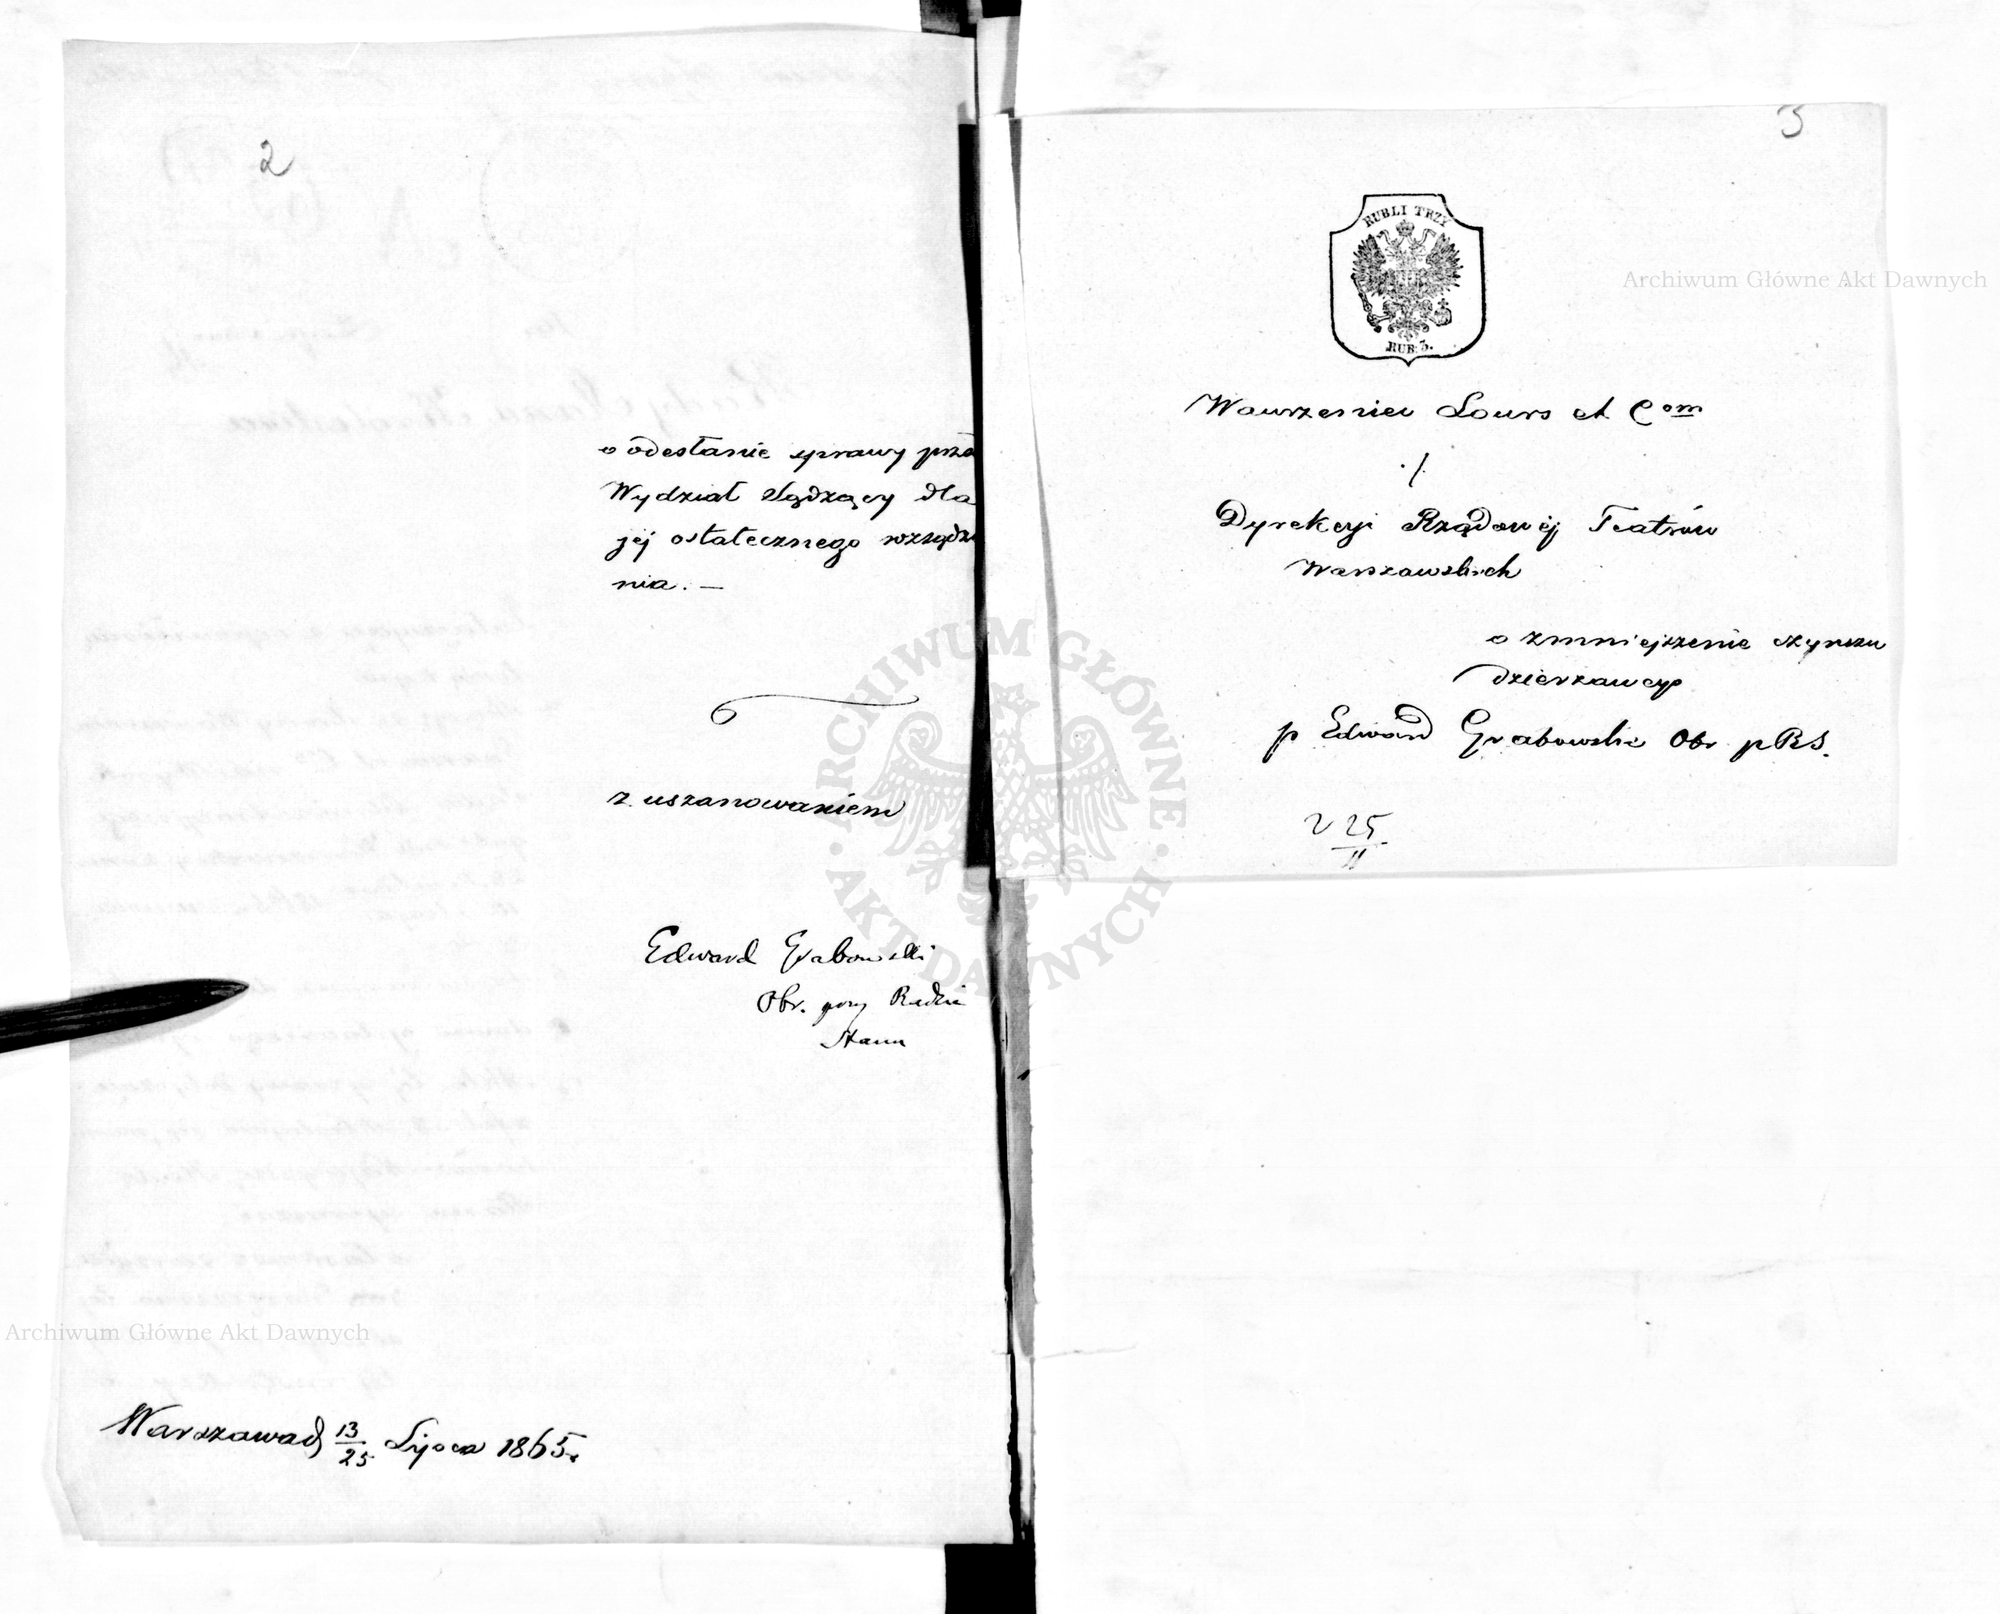 2
o odesłanie sprawy prze
Wydział Sądzący dla
jej ostatecznego rozsądze
nia. —
z uszanowaniem
Edward Grabowski
Obr. przy Radzie
Stanu
Warszawa d 13/25 Lipca 1865.
3
RUBLI TRZY
RUB: 3.
Wawrzeniec Lours et Com
./.
Dyrekcyi Rządowéj Teatrów
Warszawskich
o zmniejszenie czynszu
dzierzawcy
p Edward Grabowski Obr p RS.
25/11
Archiwum Główne Akt Dawnych
ARCHIWUM GŁÓWNE · AKT DAWNYCH ·
Archiwum Główne Akt Dawnych